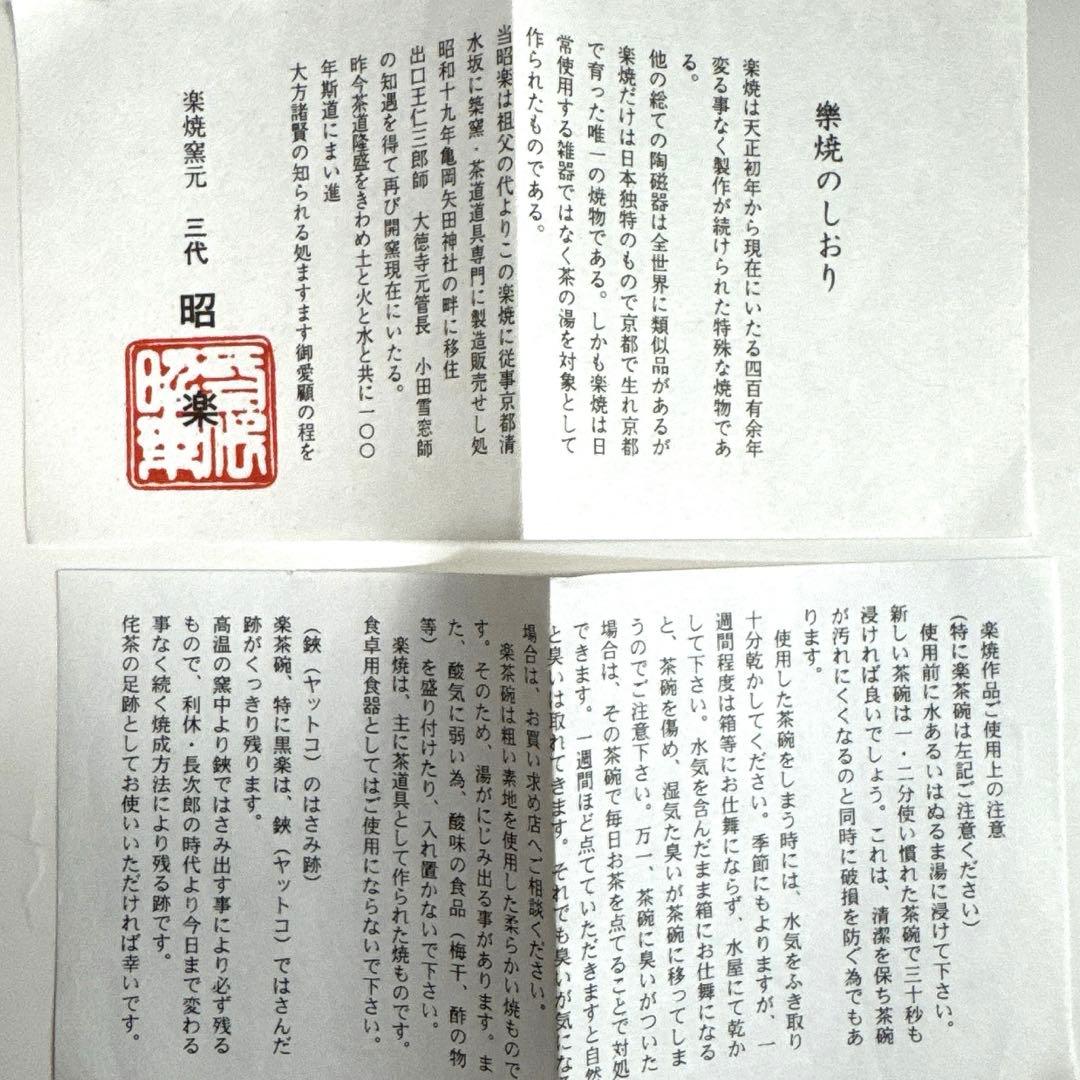 樂焼のしおり
楽焼は天正初年から現在にいたる四百有余年
変る事なく製作が続けられた特殊な焼物であ
る。
他の総ての陶磁器は全世界に類似品があるが
楽焼だけは日本独特のもので京都で生れ京都
で育った唯一の焼物である。しかも楽焼は日
常使用する雑器ではなく茶の湯を対象として
作られたものである。
当昭楽は祖父の代よりこの楽焼に従事京都清
水坂に築窯・茶道道具専門に製造販売せし処
昭和十九年亀岡矢田神社の畔に移住
出口王仁三郎師 大徳寺元管長 小田雪窓師
の知遇を得て再び開窯現在にいたる。
昨今茶道隆盛をきわめ土と火と水と共に一〇〇
年斯道にまい進
大方諸賢の知られる処ますます御愛顧の程を
楽焼窯元 三代 昭楽
楽焼作品ご使用上の注意
(特に楽茶碗は左記ご注意ください)
使用前に水あるいはぬるま湯に浸けて下さい。
新しい茶碗は一・二分使い慣れた茶碗で三十秒も
浸ければ良いでしょう。これは、清潔を保ち茶碗
が汚れにくくなるのと同時に破損を防ぐ為でもあ
ります。
使用した茶碗をしまう時には、水気をふき取り
十分乾かしてください。季節にもよりますが、一
週間程度は箱等にお仕舞にならず、水屋にて乾か
して下さい。水気を含んだまま箱にお仕舞になる
と、茶碗を傷め、湿気た臭いが茶碗に移ってしま
うのでご注意下さい。万一、茶碗に臭いがついた
場合は、その茶碗で毎日お茶を点てることで対処
できます。一週間ほど点てていただきますと自然
と臭いは取れてきます。それでも臭いが気になる
場合は、お買い求め店へご相談ください。
楽茶碗は粗い素地を使用した柔らかい焼もので
す。そのため、湯がにじみ出る事があります。ま
た、酸気に弱い為、酸味の食品(梅干、酢の物
等)を盛り付けたり、入れ置かないで下さい。
楽焼は、主に茶道具として作られた焼ものです。
食卓用食器としてはご使用にならないで下さい。
(鋏(ヤットコ)のはさみ跡)
楽茶碗、特に黒楽は、鋏(ヤットコ)ではさんだ
跡がくっきり残ります。
高温の窯中より鋏ではさみ出す事により必ず残る
もので、利休・長次郎の時代より今日まで変わる
事なく続く焼成方法により残る跡です。
侘茶の足跡としてお使いいただければ幸いです。